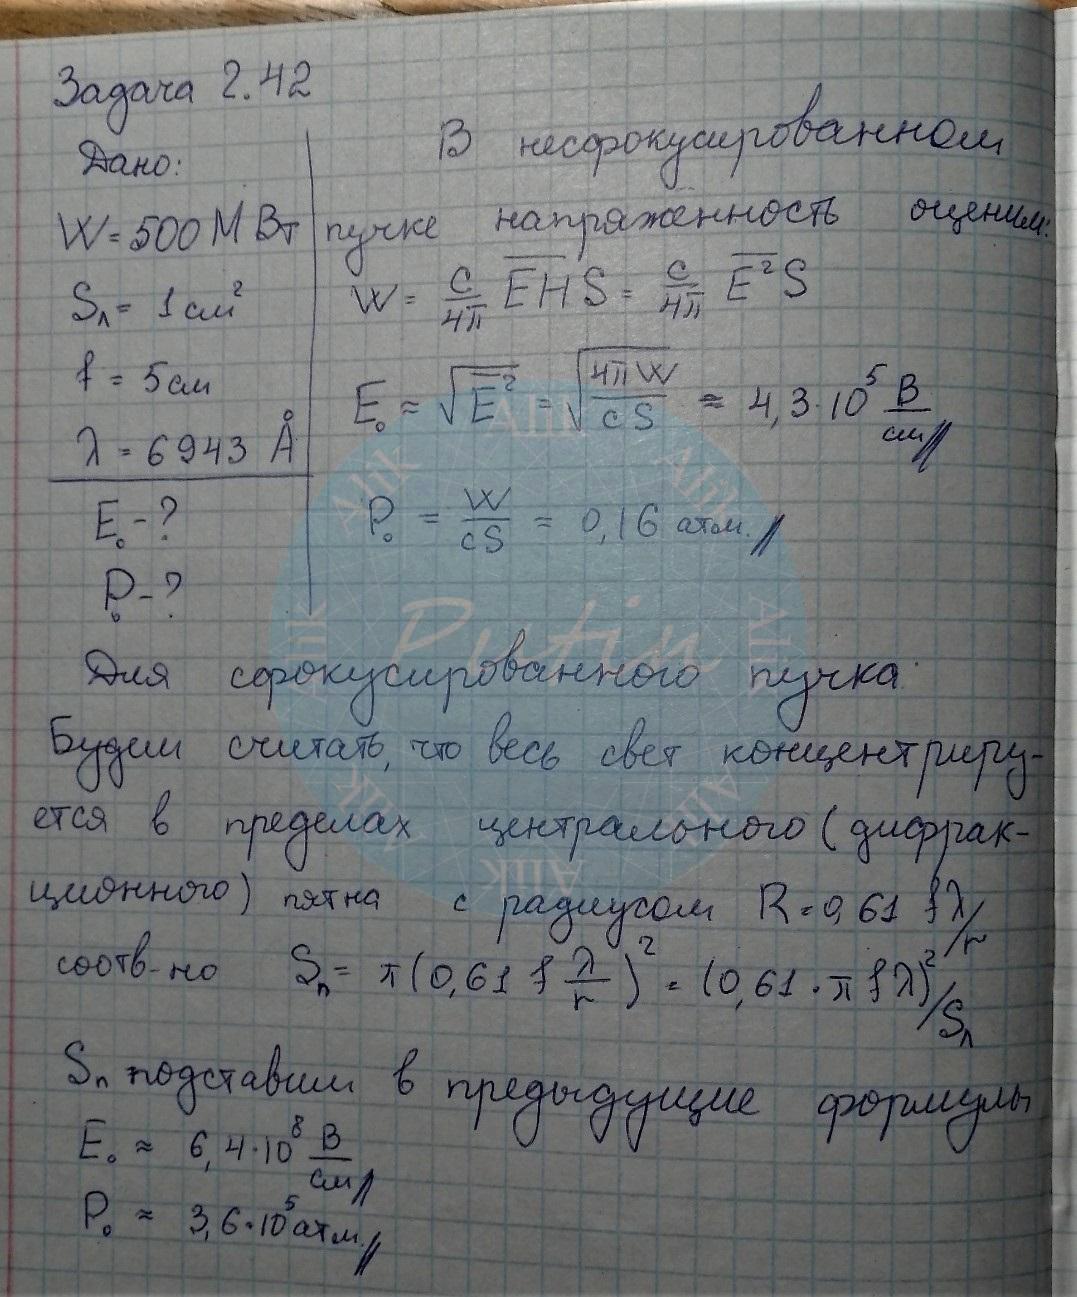 Задача 2.42
Дано:
W = 500 МВт
Sл = 1 см²
f = 5 см
λ = 6943 Å
E₀ - ?
P₀ - ?
В несфокусированном
пучке напряженность оценим:
W = c/4π \overline{EH} S = c/4π \overline{E²} S
E₀ ≈ √\overline{E²} = √(4πW/cS) ≈ 4,3·10⁵ В/см
P₀ = W/cS = 0,16 атм.
Для сфокусированного пучка:
Будем считать, что весь свет концентриру-
ется в пределах центрального (дифрак-
ционного) пятна с радиусом R = 0,61 fλ/r
соотв-но Sп = π(0,61 f λ/r)² = (0,61·π fλ)²/Sл
Sп подставим в предыдущие формулы
E₀ ≈ 6,4·10⁸ В/см
P₀ ≈ 3,6·10⁵ атм.
Putin
AlIk
AlIk
AlIk
AlIk
AlIk
AlIk
AlIk
AlIk